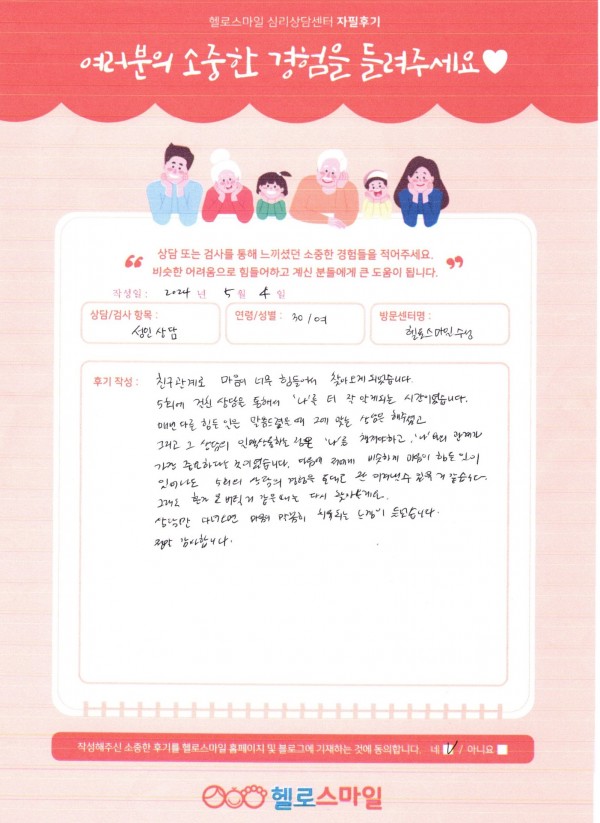 헬로스마일 심리상담센터 자필후기
여러분의 소중한 경험을 들려주세요♥
“ 상담 또는 검사를 통해 느끼셨던 소중한 경험들을 적어주세요.
비슷한 어려움으로 힘들어하고 계신 분들에게 큰 도움이 됩니다. ”
작성일 : 2024 년 5 월 4 일
상담/검사 항목 : 성인상담
연령/성별 : 30/여
방문센터명 : 헬로스마일 수성
후기 작성 : 친구관계로 마음이 너무 힘들어서 찾아오게 되었습니다.
5회에 걸친 상담은 통해서 '나'를 더 잘 알게되는 시간이었습니다.
매번 다른 힘든 일은 말씀드렸을 때 그에 맞는 상담을 해주셨고
그리고 그 상담의 '나'를 챙겨야하고, '나'와의 관계가
가장 중요하다는 것이었습니다. 다음에 비슷하게 마음이 힘든 일이
있더라도 5회의 상담의 경험을 토대로 잘 이겨낼수 있을 거 같습니다.
그래도 혼자 못 버틸거 같을때는 다시 찾아올게요.
상담만 다녀가면 마음이 말끔히 치유되는 느낌이 들었습니다.
정말 감사합니다.
작성해주신 소중한 후기를 헬로스마일 홈페이지 및 블로그에 기재하는 것에 동의합니다. 네 ✓ / 아니요
헬로스마일